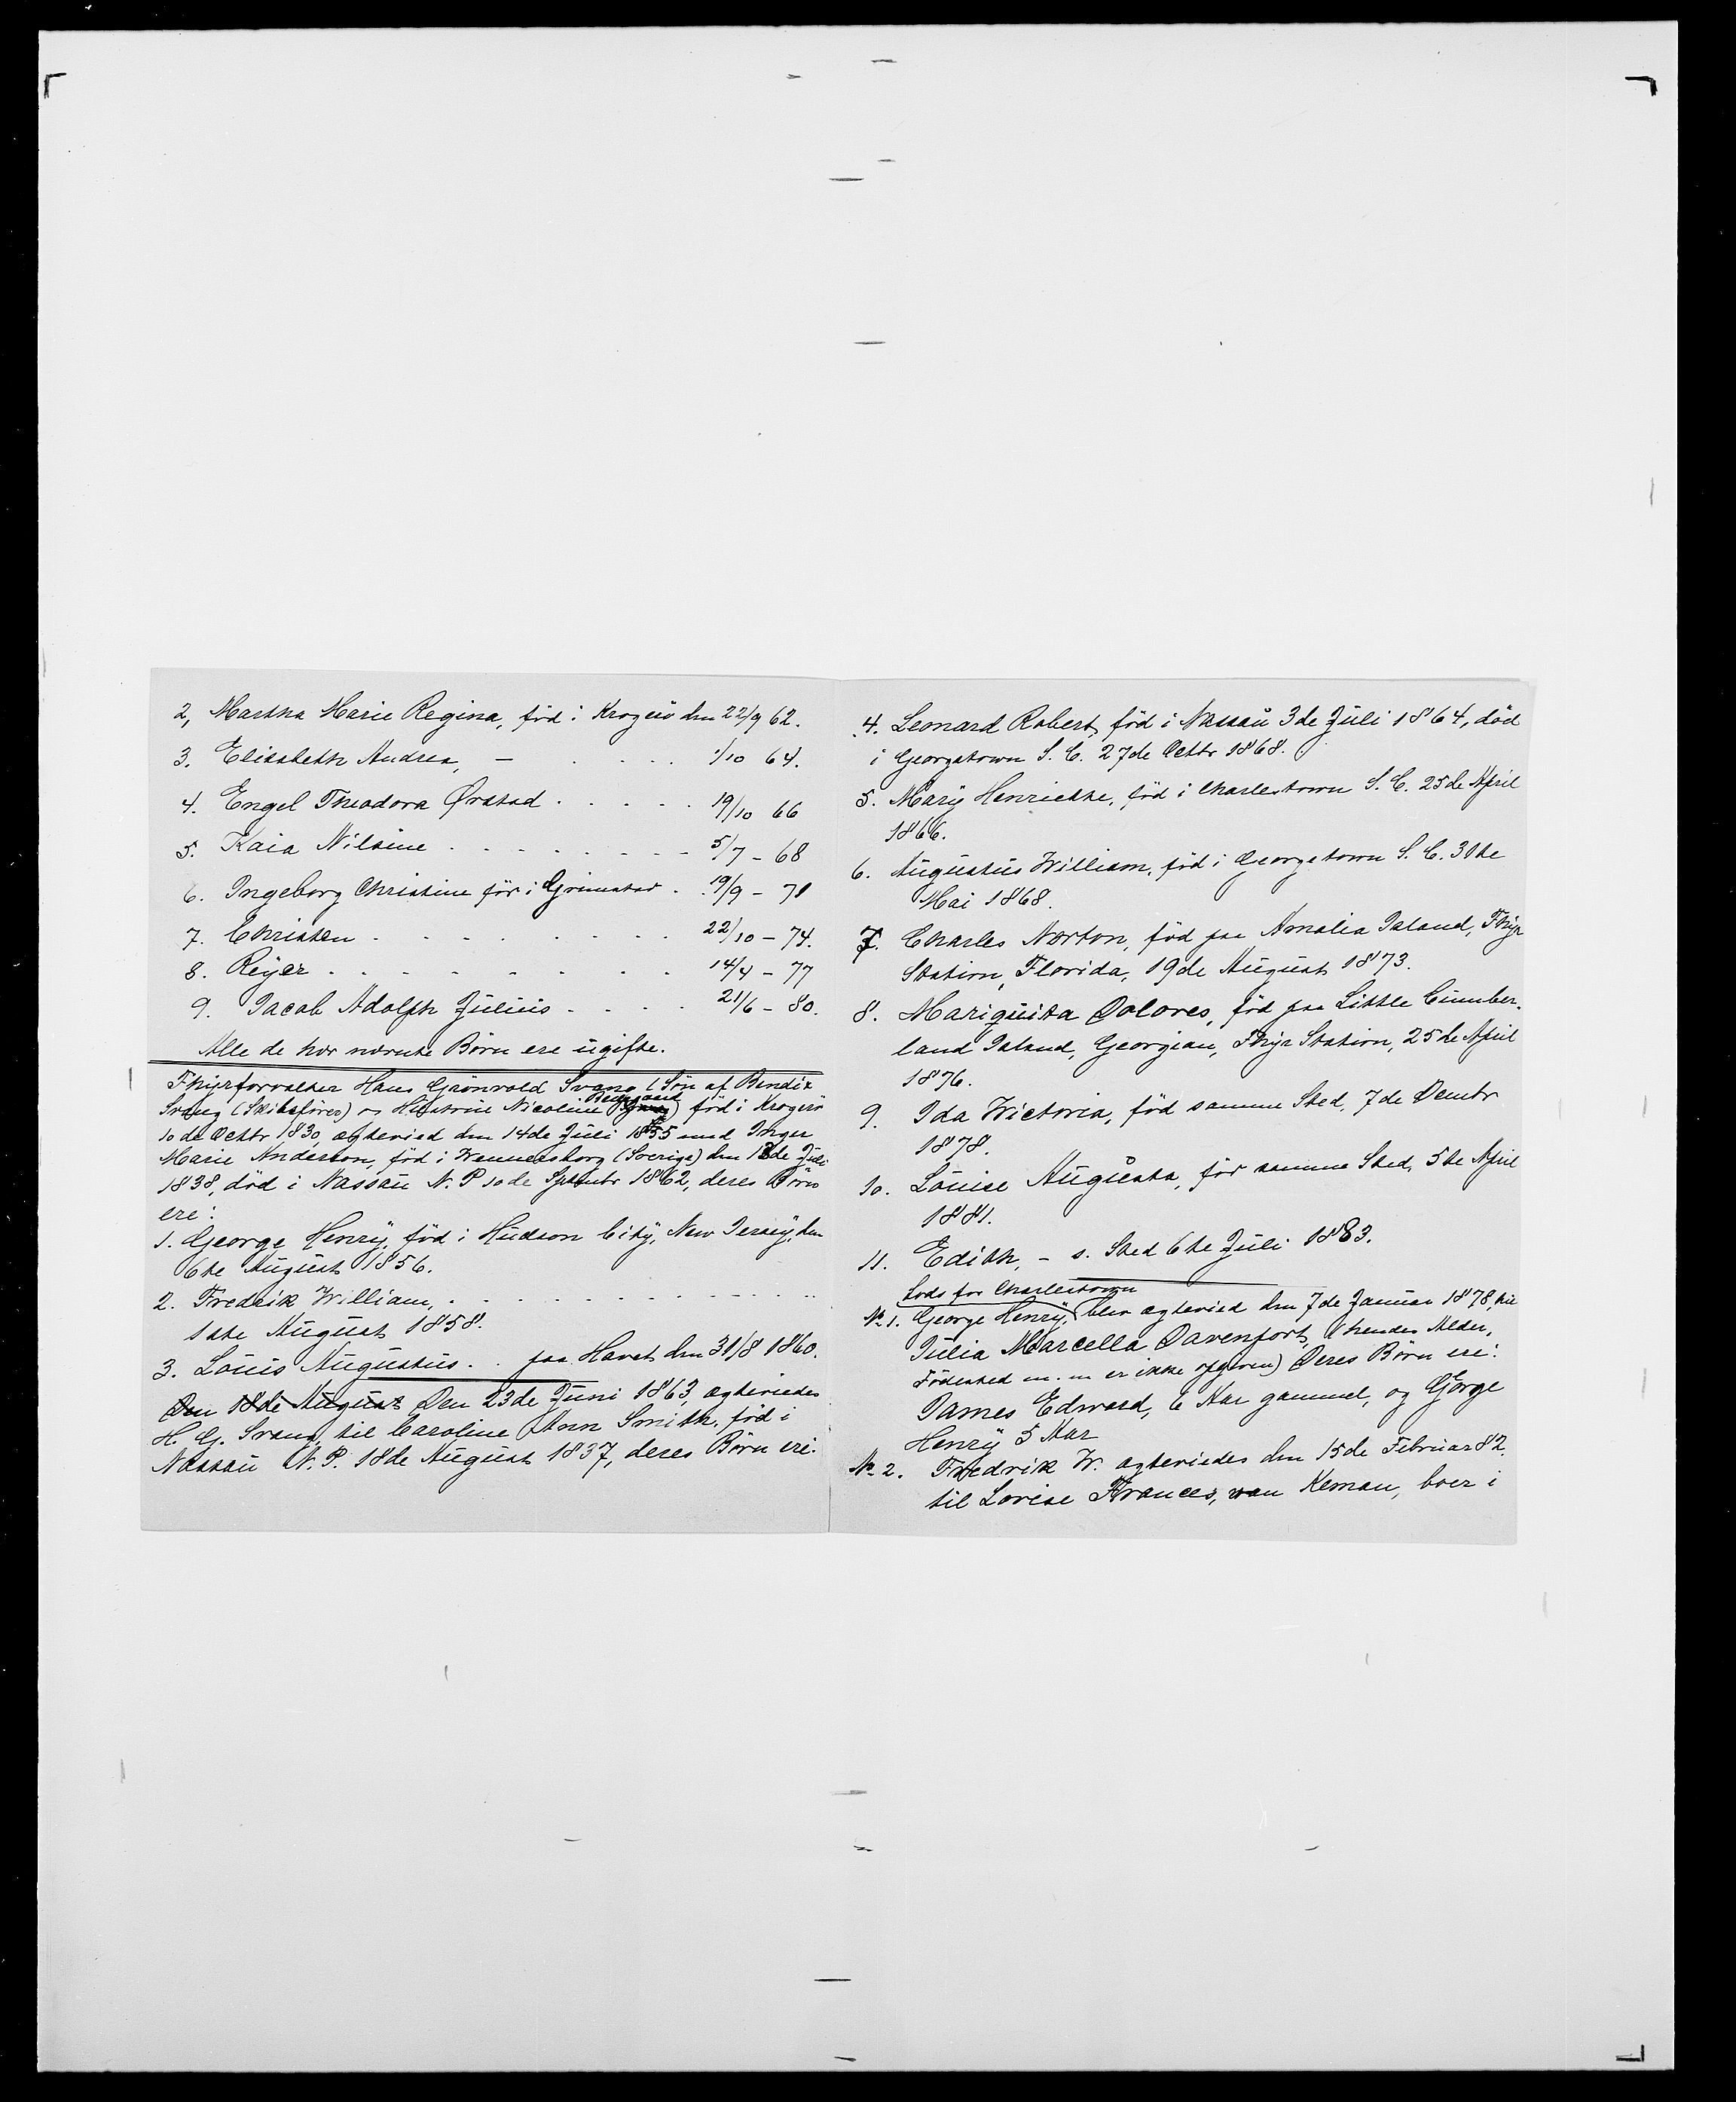 2, Martha Marie Regina, föd i Krogerö den 22/9 62.
3. Elisabeth Andrea, — . . . . 1/10 64.
4. Engel Theodora Ørstad . . . . . 19/10 66
5. Kaia Nilsine . . . . . . . . . 5/7 - 68
6. Ingeborg Christine för i Grimstad . . 19/9 - 71
7. Christen . . . . . . . . . 22/10 - 74.
8. Reyer . . . . . . . . . 14/4 - 77
9. Jacob Adolph Julius . . . . 21/6 - 80.
Alle de her nevnte Börn ere ugifte.
Fhyrforvalter Hans Grönvold Svang (Sön af Bendix
Svang (Skibsförer) og Hustrue Nicoline ) föd i Krogerö
10de Octbr 1830, egteviet den 14de Juli 1855 med Inger
Marie Anderson, föd i Wennersborg (Sverige) den 12de Juli
1838, död i Nassau N. P 10de Septmbr 1862, deres Börn
ere:
1. George Henry, föd i Hudson City, New Jersey, den
6te August 1856.
2. Fredrik William, . . . . . . . . . . . .
1ste August 1858.
3. Louis Augustus . . paa Havet den 31/8 1860.
Den 18de August Den 23de Juni 1863, egteviedes
H. G. Svang, til Caroline Ann Smith, föd i
Nassau N. P. 18de August 1837, deres Börn ere:
4. Leonard Robert, föd i Nassau 3de Juli 1864, död
i Georgetown S. C. 27de Octbr 1868.
5. Mary Henriette, föd i Charlestown S. C. 25de April
1866.
6. Augustus William, föd i Georgetown S. C. 30te
Mai 1868.
7. Charles Norton, föd paa Amalia Island, Fhyr
Station, Florida, 19de August 1873.
8. Mariquita Dolores, föd paa Little Cumber-
land Island, Georgian, Fhyr Station, 25de April
1876.
9. Ida Wictoria, föd samme Sted, 7de Dembr
1878.
10. Louise Augusta, för samme Sted, 5te April
1881.
11. Edith, - s. Sted 6te Juli 1883.
Lods for Charlestown
No 1. George Henry, blev egteviet den 7de Januar 1878, til
Julia Marcella Davenport, (hendes Alder,
Födested m. m er ikke opgiven) Deres Börn ere:
James Edward, 6 Aar gammel, og Gorge
Henry 5 Aar
No 2. Fredrik W. egteviedes den 15de Februar 82.
til Lovise Frances, van Keman, boer i